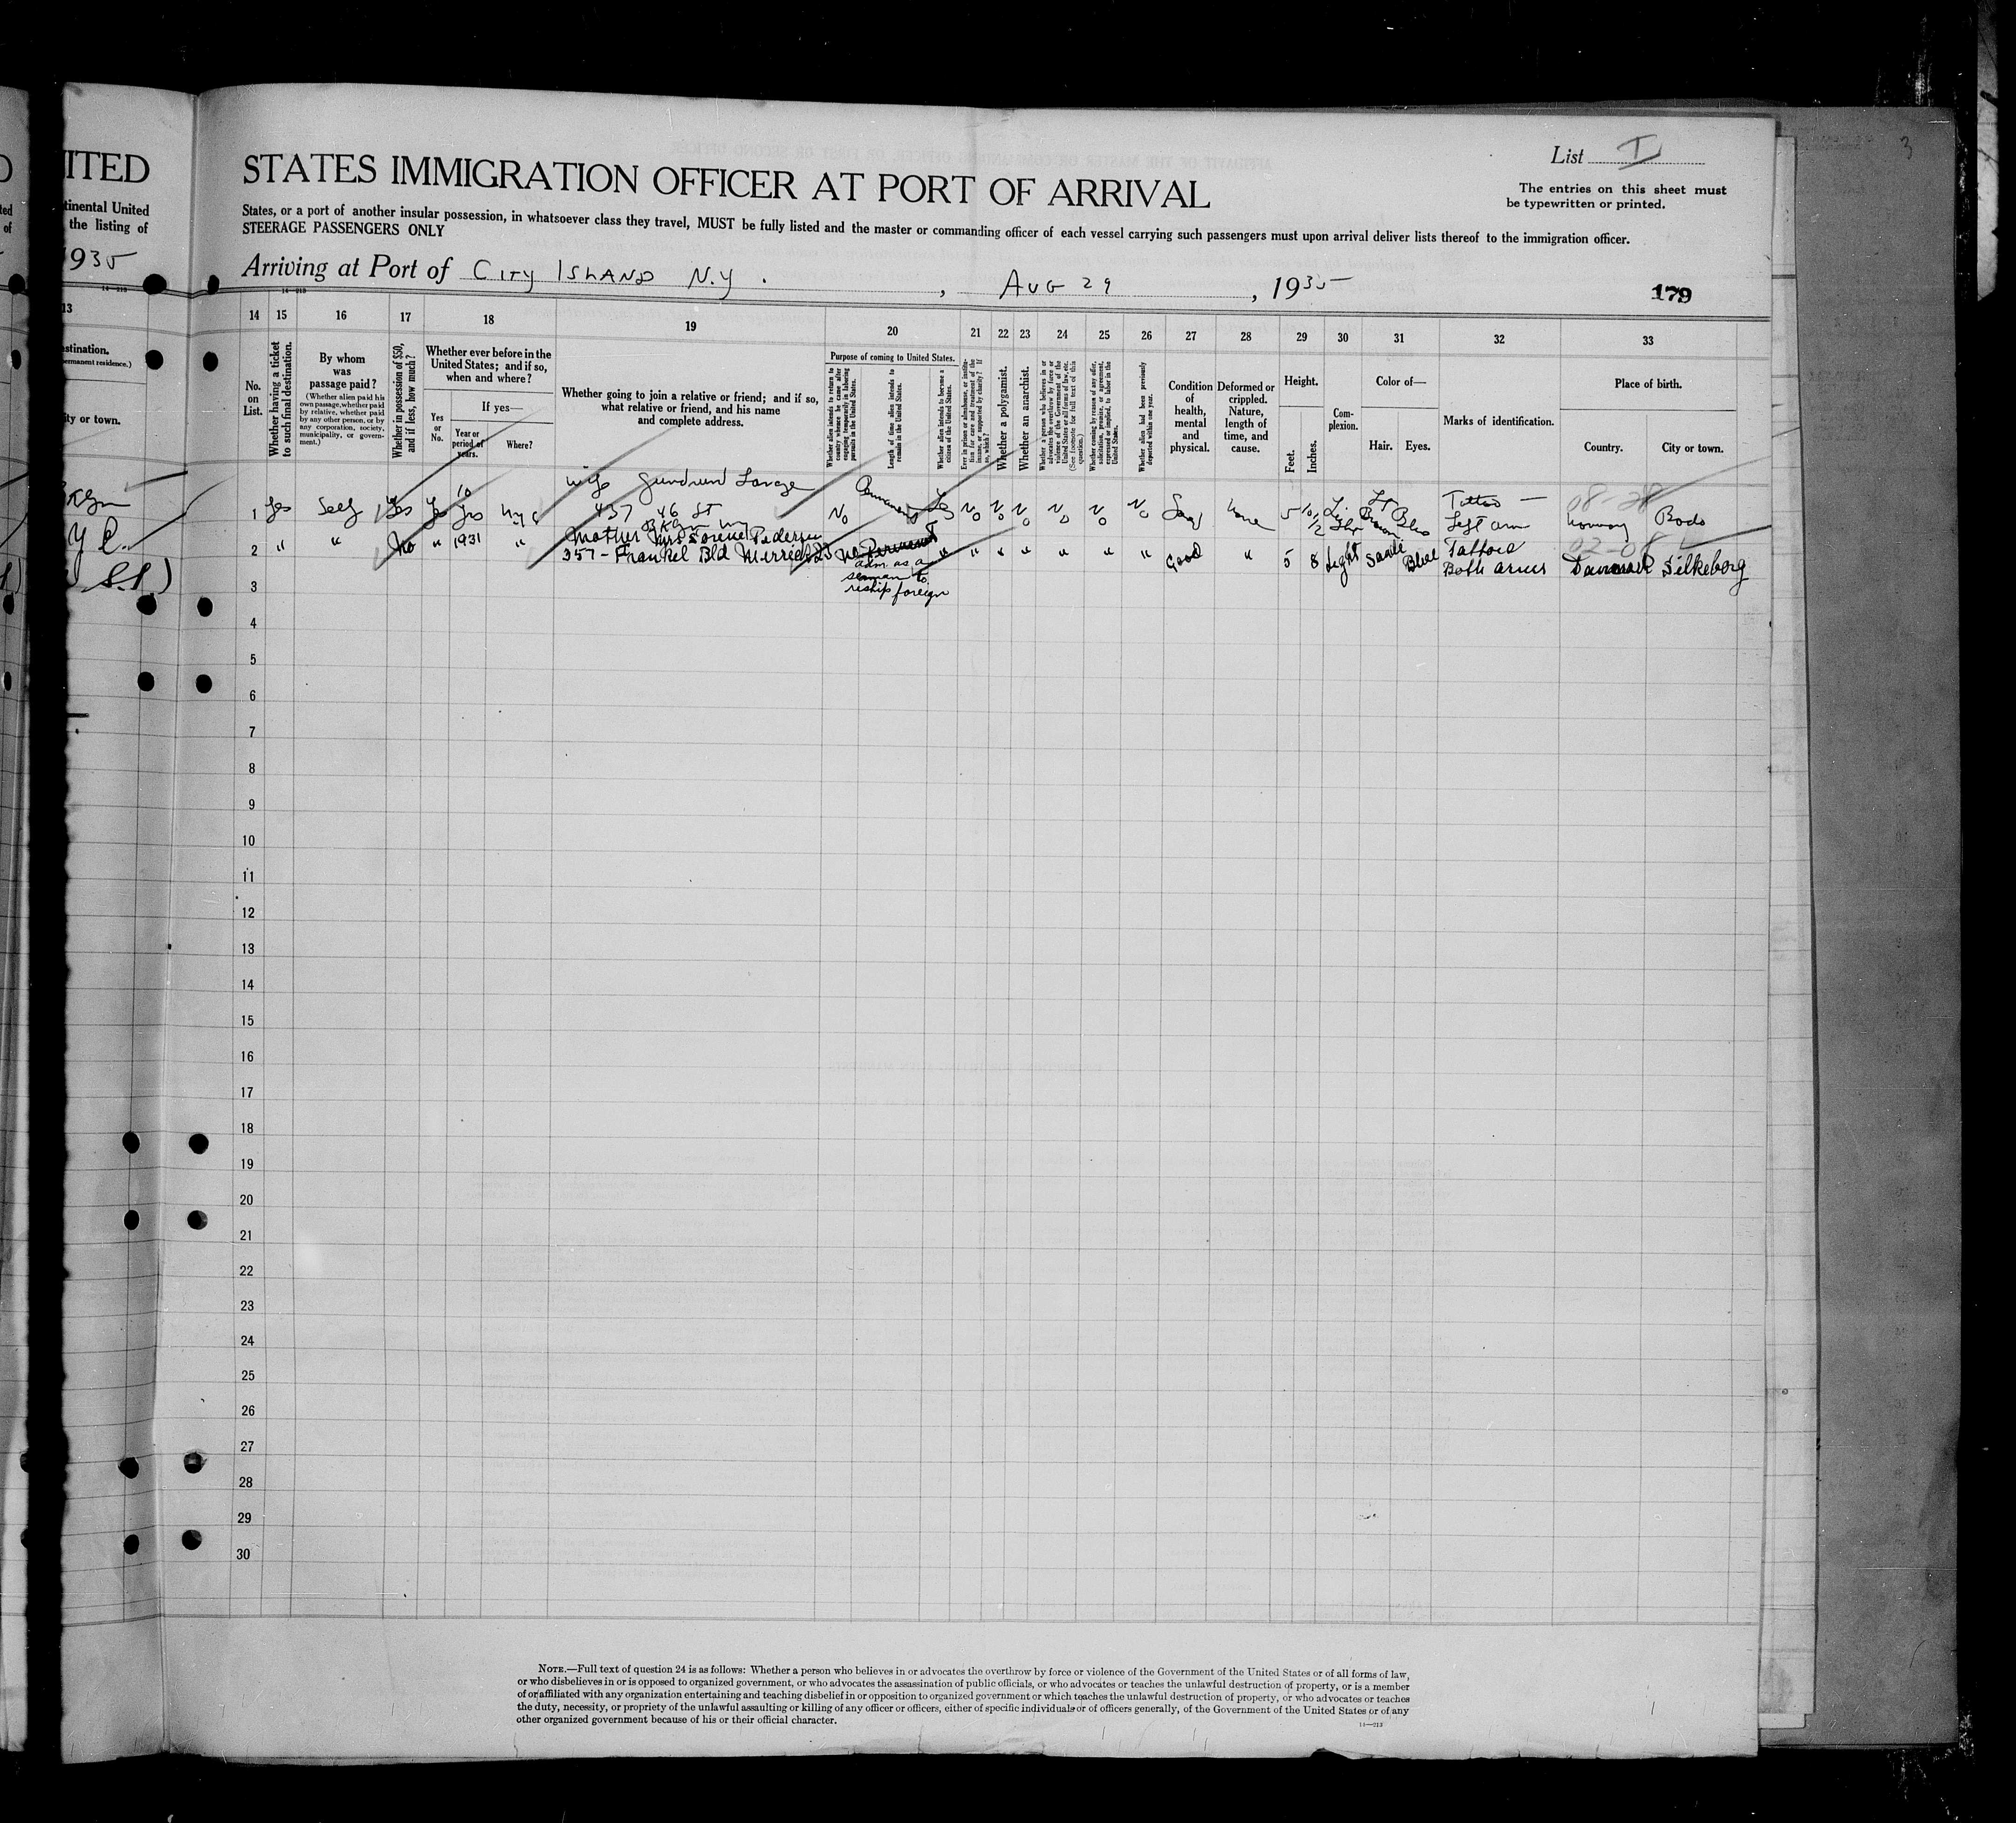 ITED
tinental United
the listing of
1935
13
stination.
ermanent residence.)
ity or town.
Bklyn
S.S.)
List I
The entries on this sheet must
be typewritten or printed.
STATES IMMIGRATION OFFICER AT PORT OF ARRIVAL
States, or a port of another insular possession, in whatsoever class they travel, MUST be fully listed and the master or commanding officer of each vessel carrying such passengers must upon arrival deliver lists thereof to the immigration officer.
STEERAGE PASSENGERS ONLY
Arriving at Port of CITY ISLAND N.Y. , AUG 29 , 1935
179
14 15 16 17 18 19 20 21 22 23 24 25 26 27 28 29 30 31 32 33
No. on List.
Whether having a ticket to such final destination.
By whom was passage paid?
(Whether alien paid his own passage, whether paid by relative, whether paid by any other person, or by any corporation, society, municipality, or government.)
Whether in possession of $50, and if less, how much?
Whether ever before in the United States; and if so, when and where?
Yes or No.
If yes—
Year or period of years.
Where?
Whether going to join a relative or friend; and if so, what relative or friend, and his name and complete address.
Purpose of coming to United States.
Whether alien intends to return to country whence he came after engaging temporarily in laboring pursuits in the United States.
Length of time alien intends to remain in the United States.
Whether alien intends to become a citizen of the United States.
Ever in prison or almshouse, or institution for care and treatment of the insane, or supported by charity? If so, which?
Whether a polygamist.
Whether an anarchist.
Whether a person who believes in or advocates the overthrow by force or violence of the Government of the United States or all forms of law, etc. (See footnote for full text of this question.)
Whether coming by reason of any offer, solicitation, promise, or agreement, expressed or implied, to labor in the United States.
Whether alien had been previously deported within one year.
Condition of health, mental and physical.
Deformed or crippled. Nature, length of time, and cause.
Height.
Feet. Inches.
Complexion.
Color of—
Hair. Eyes.
Marks of identification.
Place of birth.
Country. City or town.
1 Yes Self Yes Yes 10 Yrs N.Y.C wife 457 46 St Bklyn NY No Permanent Yes No No No No No No Good None 5 10 1/2 Lt Brown Blue Tattoo — Left arm 08-28 Norway Bodo
2 " " No " 1931 " Mother Mrs Pedersen 357 - Frankel Bld No Permanent " " " " " " " Good " 5 8 Light Blue Tattoed Both arms Danmark Silkeborg
adm. as a
seaman to
reship foreign
3
4
5
6
7
8
9
10
11
12
13
14
15
16
17
18
19
20
21
22
23
24
25
26
27
28
29
30
NOTE.—Full text of question 24 is as follows: Whether a person who believes in or advocates the overthrow by force or violence of the Government of the United States or of all forms of law,
or who disbelieves in or is opposed to organized government, or who advocates the assassination of public officials, or who advocates or teaches the unlawful destruction of property, or is a member
of or affiliated with any organization entertaining and teaching disbelief in or opposition to organized government or which teaches the unlawful destruction of property, or who advocates or teaches
the duty, necessity, or propriety of the unlawful assaulting or killing of any officer or officers, either of specific individuals or of officers generally, of the Government of the United States or of any
other organized government because of his or their official character.
14—213